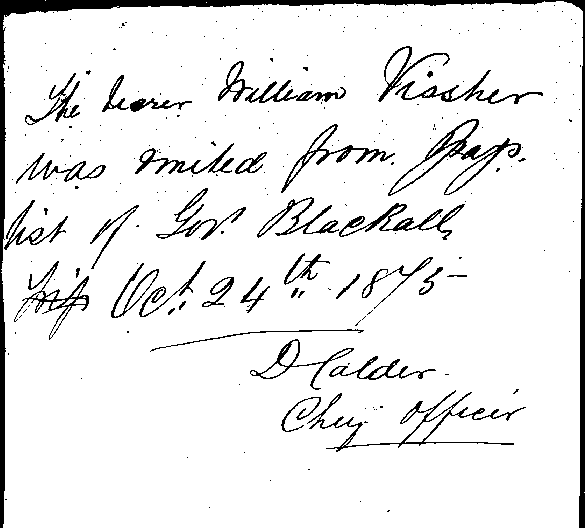 The bearer William Vissher
was omited from Pays.
list of Govr. Blackall,
Oct. 24th 1875
D Calder.
Chief Officer